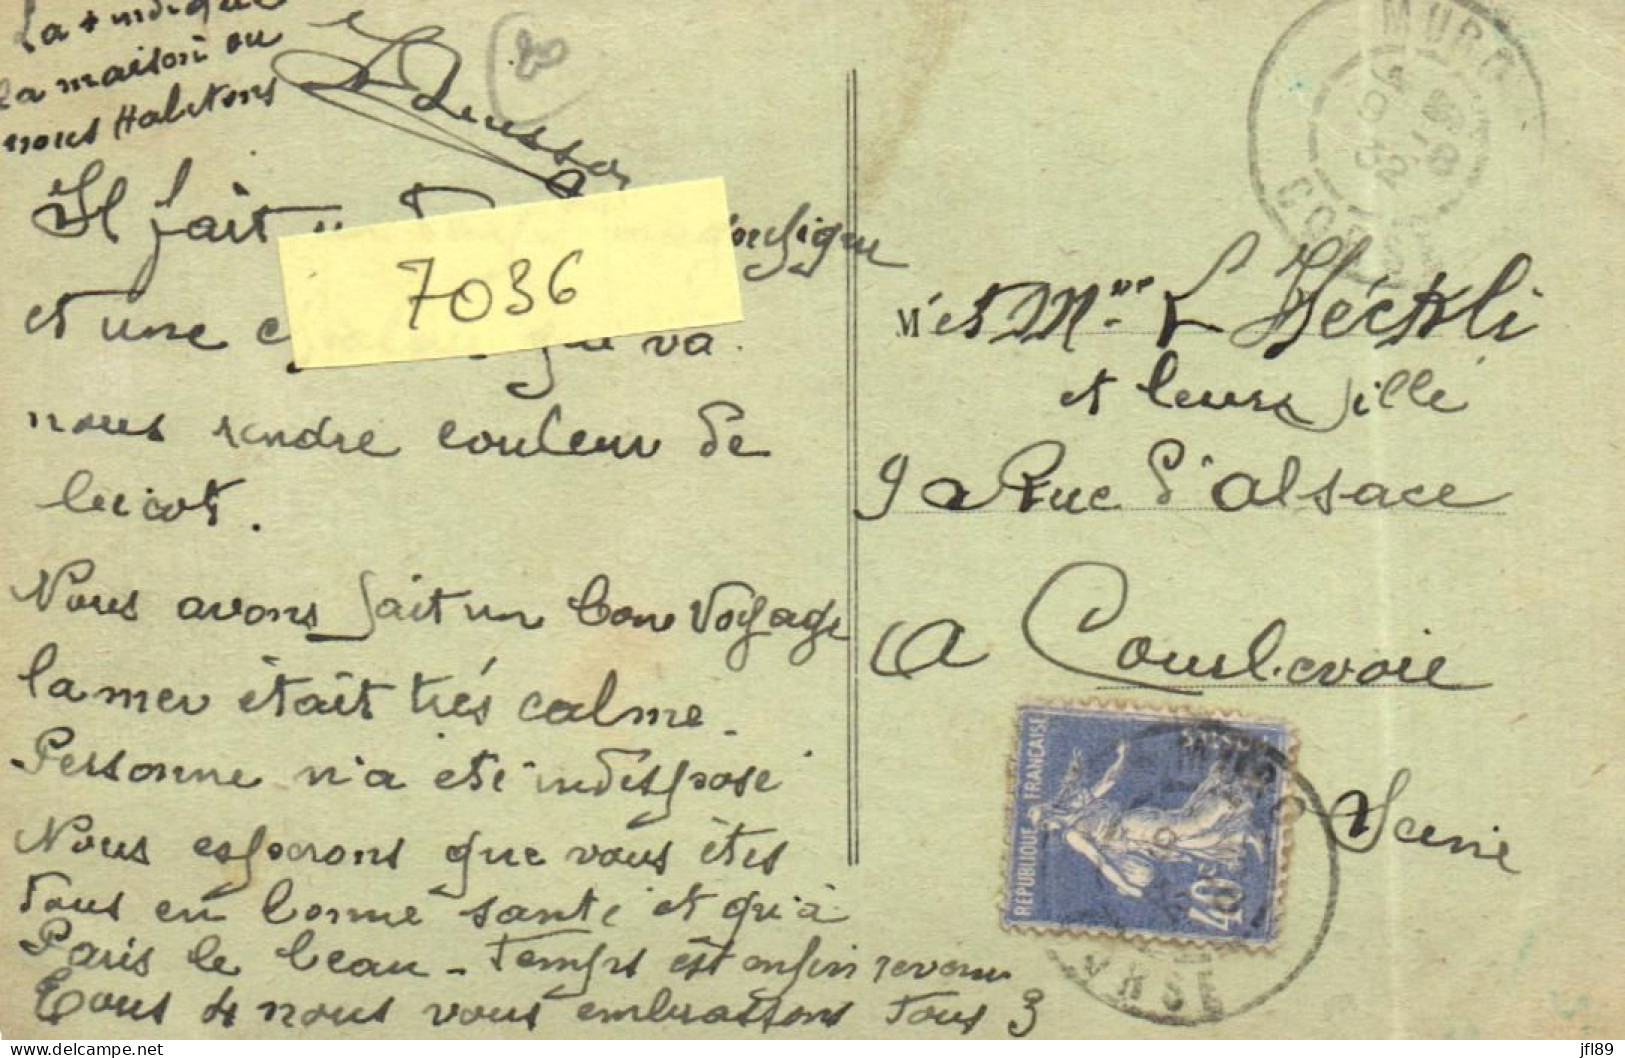 La + indique
la maison ou
nous Habitons
20
Il fait un
et une va
7036
nous rendre couleur de
lricot.
Nous avons fait un bon voyage
la mer était très calme.
Personne n'a eté indisposé
Nous esperons que vous êtes
tous en bonne santé et qu'à
Paris le beau-temps est enfin revenu
Tous 4 nous vous embrassons Tous 3
M. et Mme L Héckli
et leurs fille
9 Rue d'alsace
a Courbevoie
Seine
REPUBLIQUE FRANÇAISE
40
MURO
CORSE
delcampe.net
jfl89